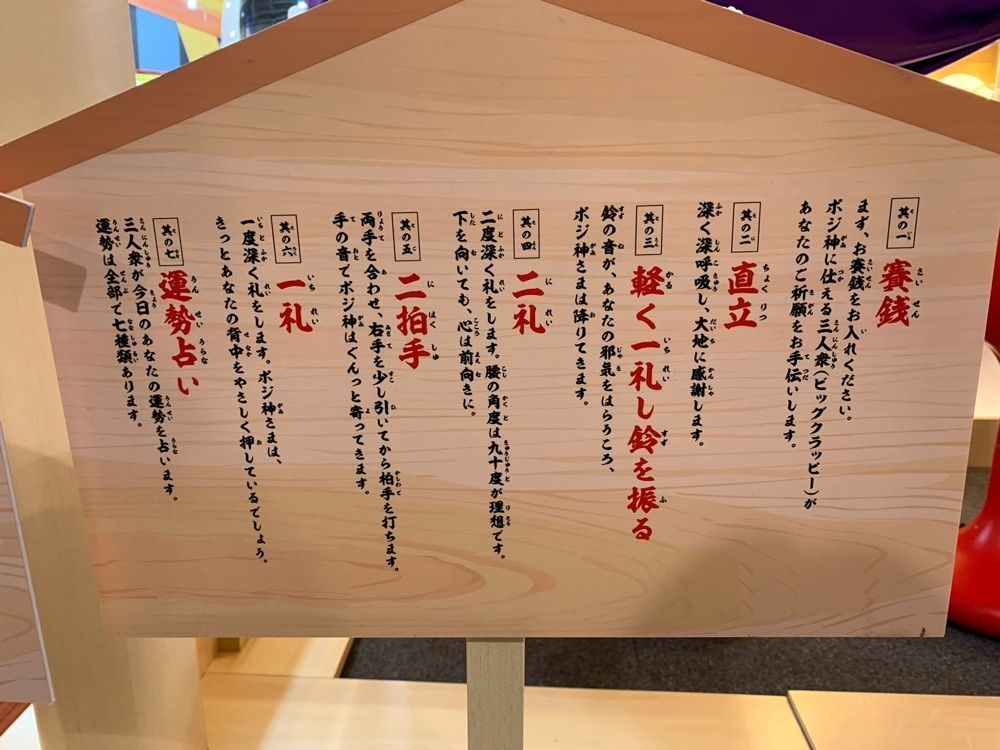 其の一
賽銭
まず、お賽銭をお入れください。
ポジ神に仕える三人衆(ビッグクラッピー)が
あなたのご祈願をお手伝いします。
其の二
直立
深く深呼吸し、大地に感謝します。
其の三
軽く一礼し鈴を振る
鈴の音が、あなたの邪気をはらうころ、
ポジ神さまは降りてきます。
其の四
二礼
二度深く礼をします。腰の角度は九十度が理想です。
下を向いても、心は前向きに。
其の五
二拍手
両手を合わせ、右手を少し引いてから柏手を打ちます。
手の音でポジ神はぐんっと寄ってきます。
其の六
一礼
一度深く礼をします。ポジ神さまは、
きっとあなたの背中をやさしく押しているでしょう。
其の七
運勢占い
三人衆が今日のあなたの運勢を占います。
運勢は全部で七種類あります。